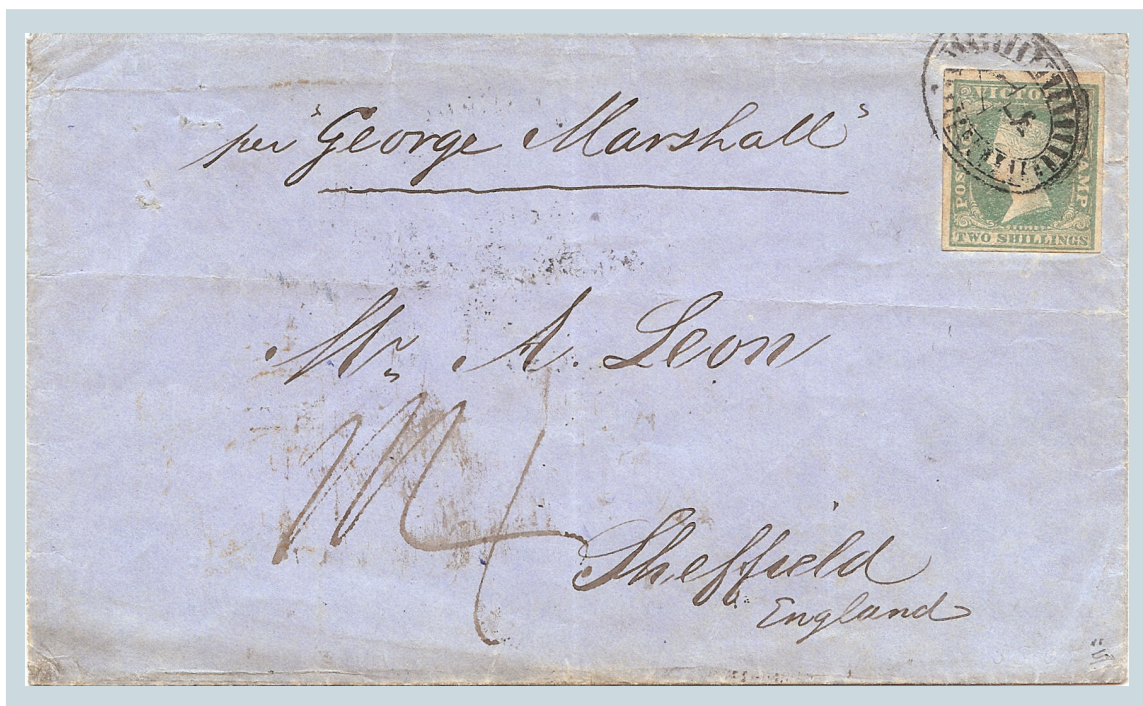 per "George Marshall"
VICTO
POS
AMP
TWO SHILLINGS
Mr A. Leon
Sheffield
England